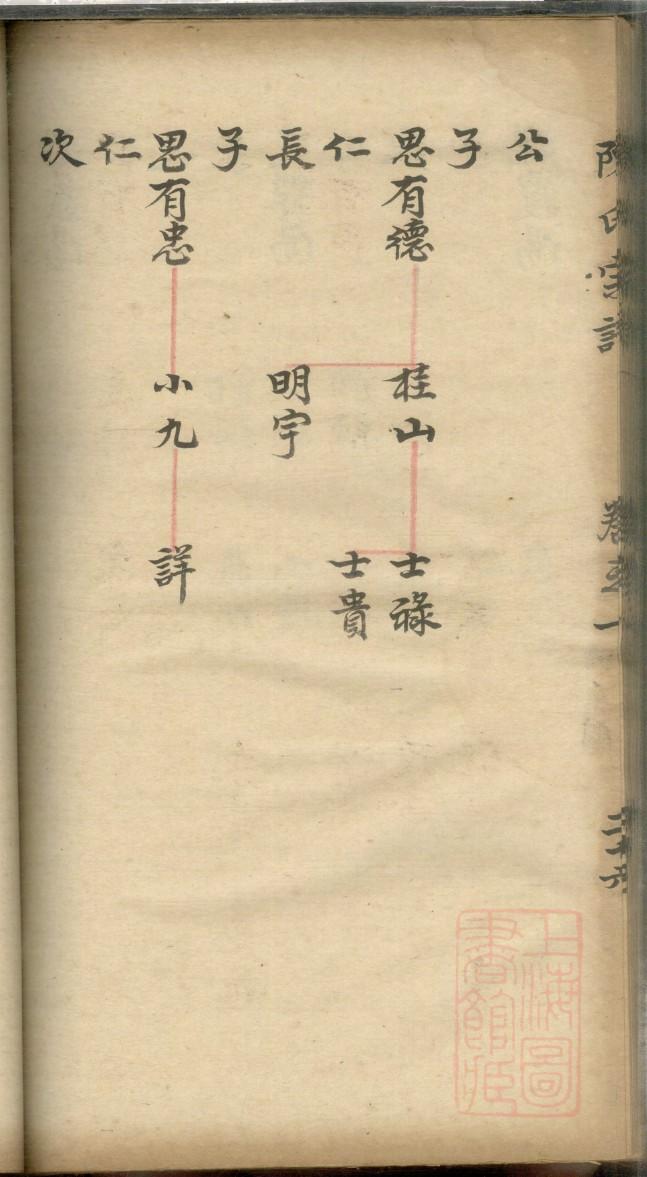 陳氏宗譜
二十六
公
子
思有德 桂山 士祿
仁 士貴
長 明宇
子
思有忠 小九 詳
仁
次
上海圖
書館藏